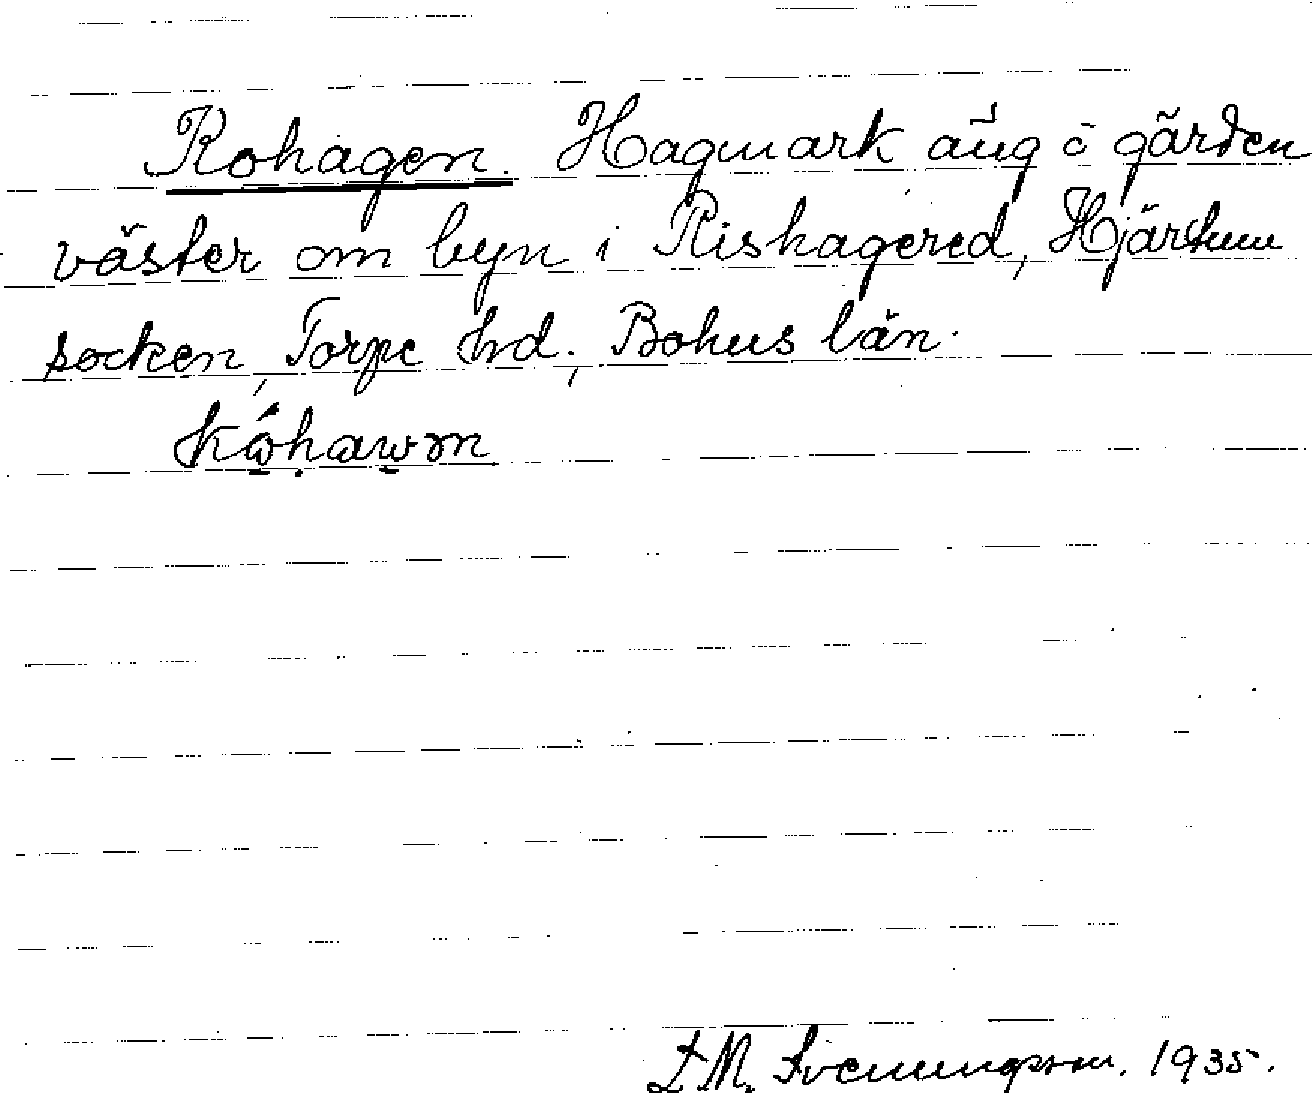 Rohagen. Hagmark äng o gärden
väster om byn i Rishagered, Hjärtum
socken, Torpe hrd., Bohus län.
Kôhawm
D. M. Svenungsson. 1935.